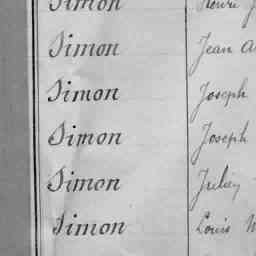 Simon Henri
Simon Jean
Simon Joseph
Simon Joseph
Simon
Simon Louis